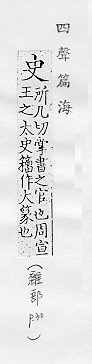 四聲篇海
史
所几切掌書之官也周宣
王之太史籀作大篆也
(雜部
p.30